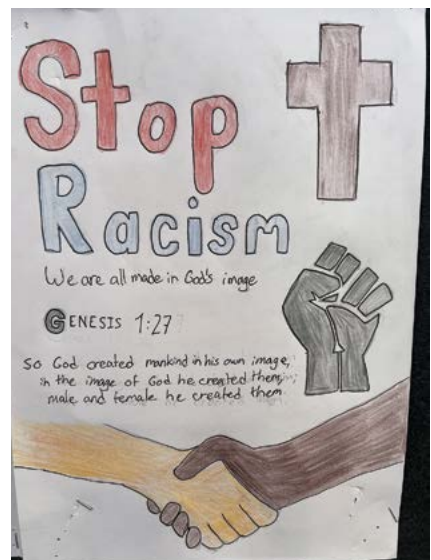 Stop
Racism
We are all made in God's image
GENESIS 1:27
So God created mankind in his own image,
in the image of God he created them;
male and female he created them